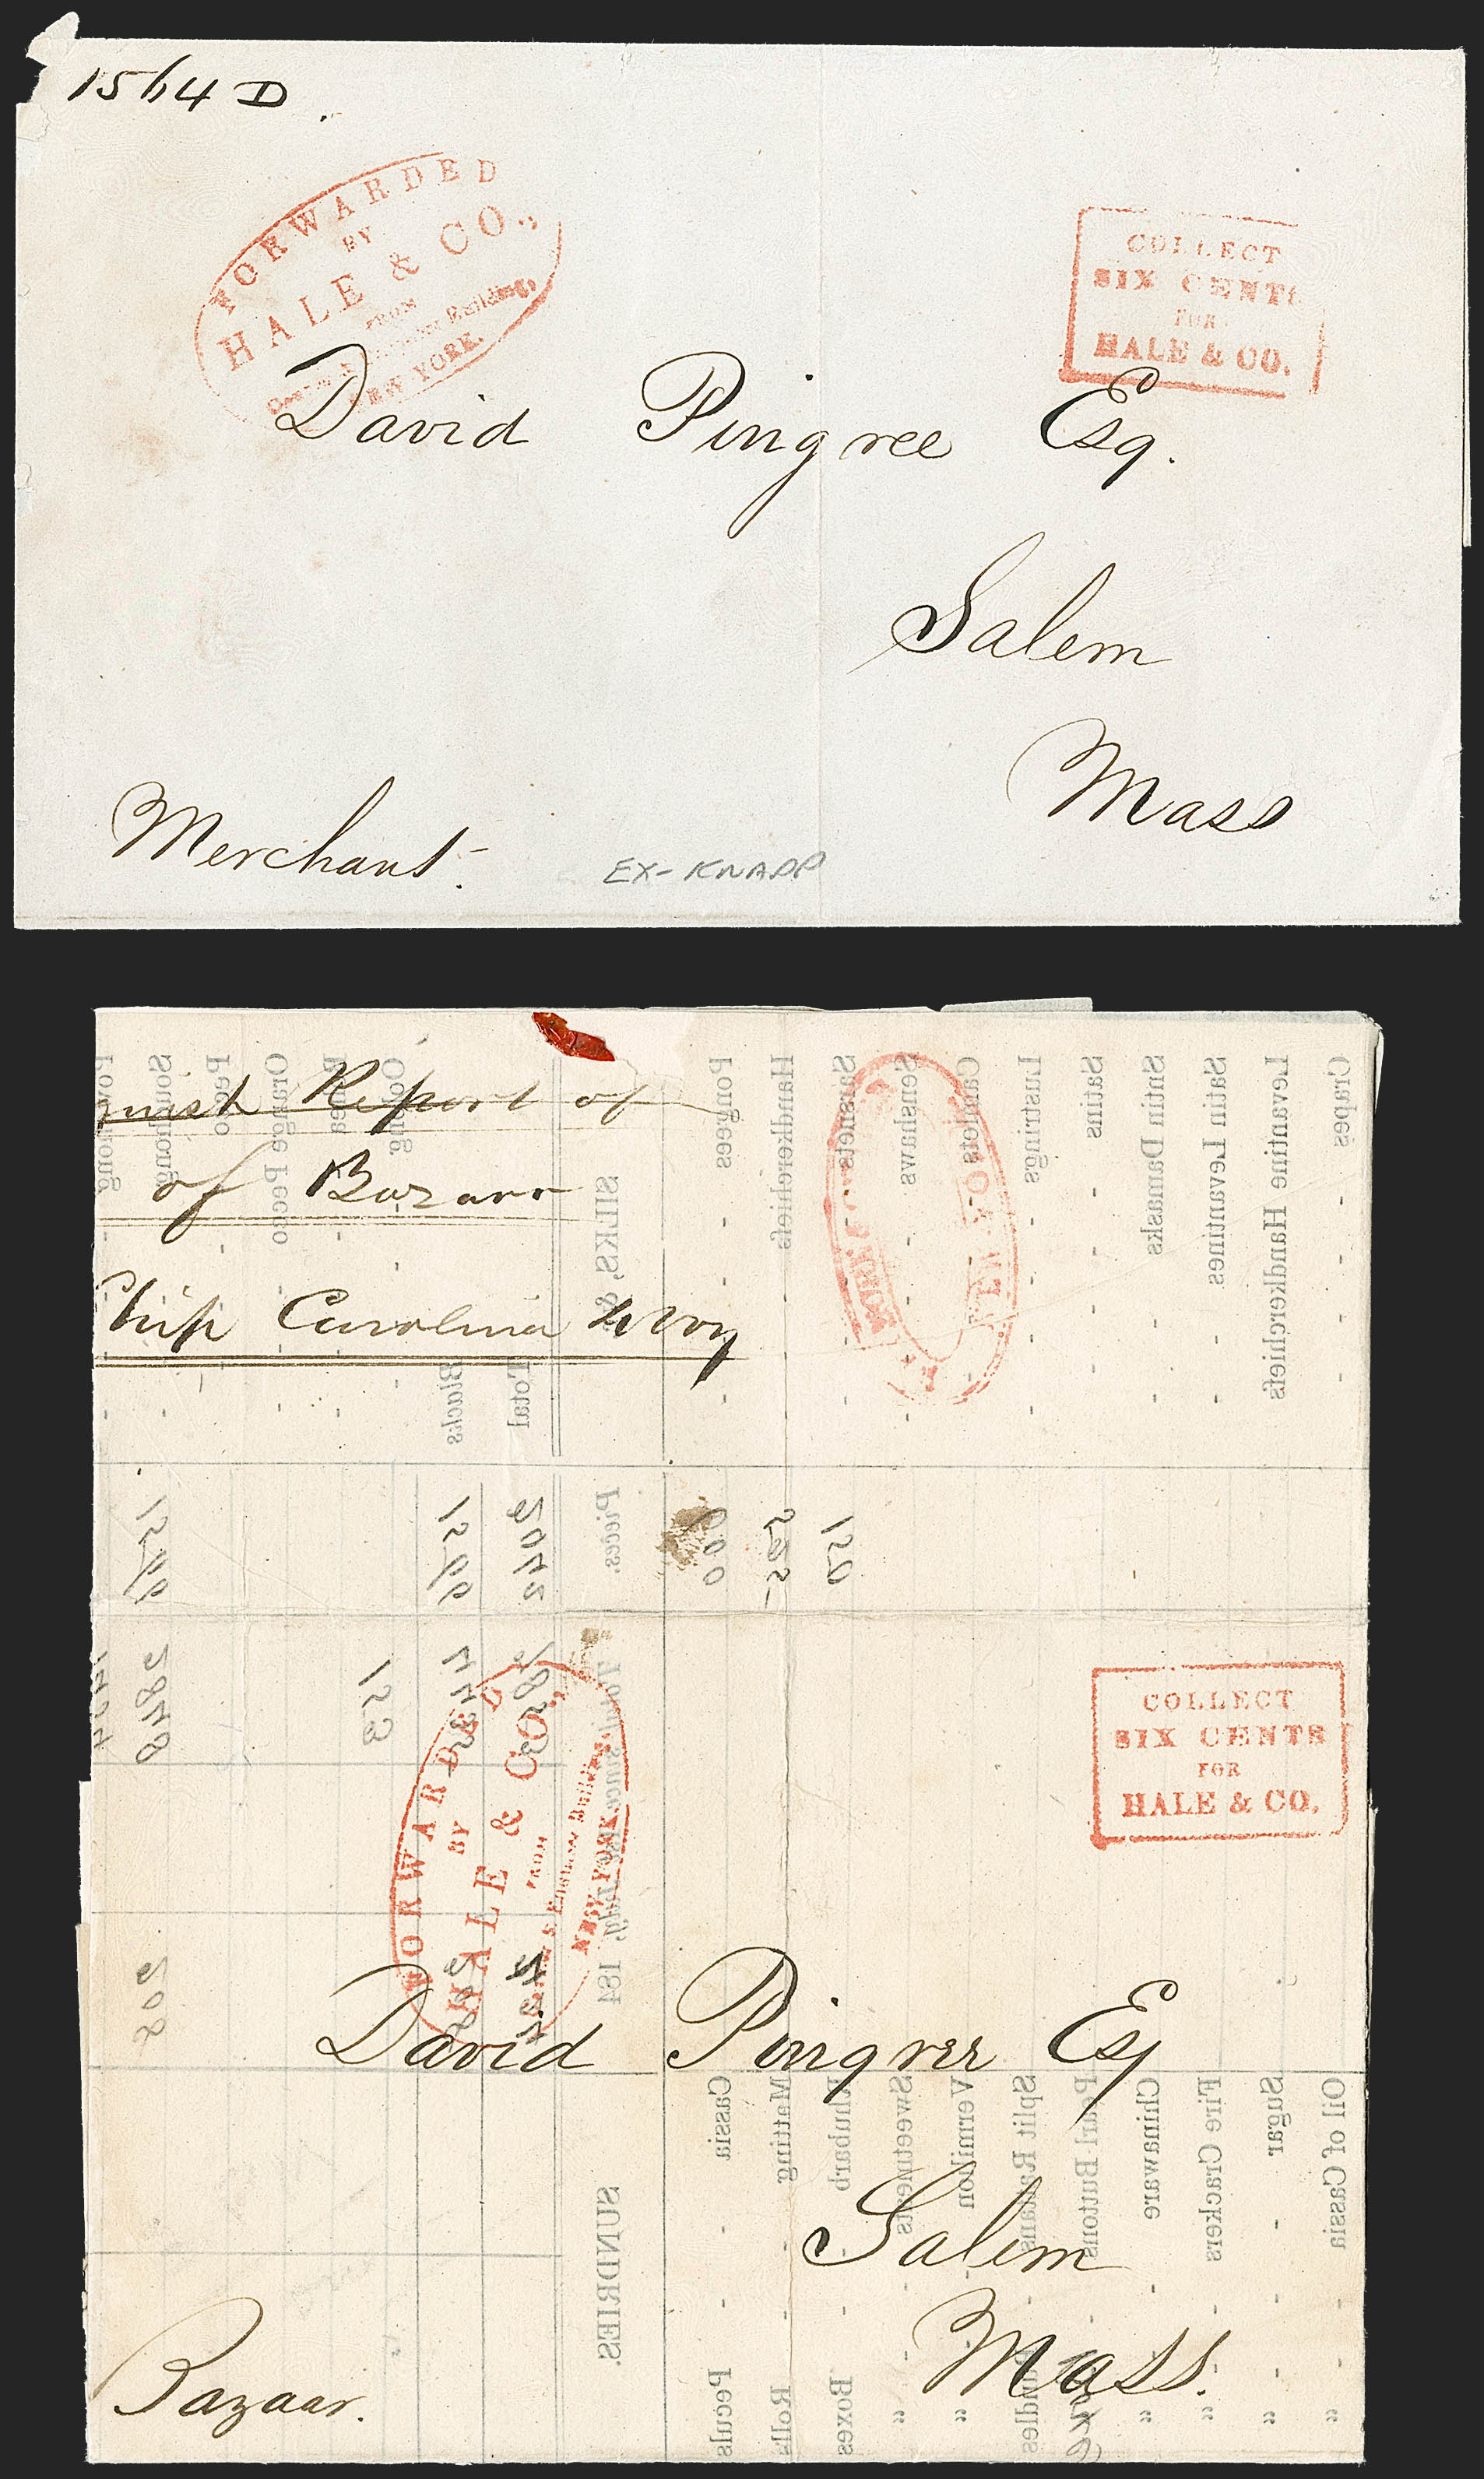 1564 D.
FORWARDED
BY
HALE & CO.,
FROM
Building,
NEW YORK.
COLLECT
SIX CENTS
FOR
HALE & CO.
David Pingree Esq.
Salem
Mass
Merchant.
EX-KNAPP
Report of
of Bazaar
Ship Carolina
Crapes
Levantine Handkerchiefs
Satin Levantines
Satin Damasks
Satins
Lustrings
Camlets
Senshaws
Sarsnets
Handkerchiefs
Pongees
SILKS, &
Oolong
Orange Pecco
Pecco
Souchong
Powchong
Total
Blacks
Pieces.
150
525
600
2042
1599
1599
153
2848
208
184
COLLECT
SIX CENTS
FOR
HALE & CO.
FORWARDED
BY
HALE & CO.,
FROM
Building
NEW YORK
David Pingree Esq
Salem
Mass.
Bazaar.
Oil of Cassia "
Sugar "
Fire Crackers "
Chinaware "
Pearl Buttons
Split Rattans Bundles
Vermilion "
Sweetmeats "
Rhubarb Boxes
Matting Rolls
Cassia Peculs
SUNDRIES.